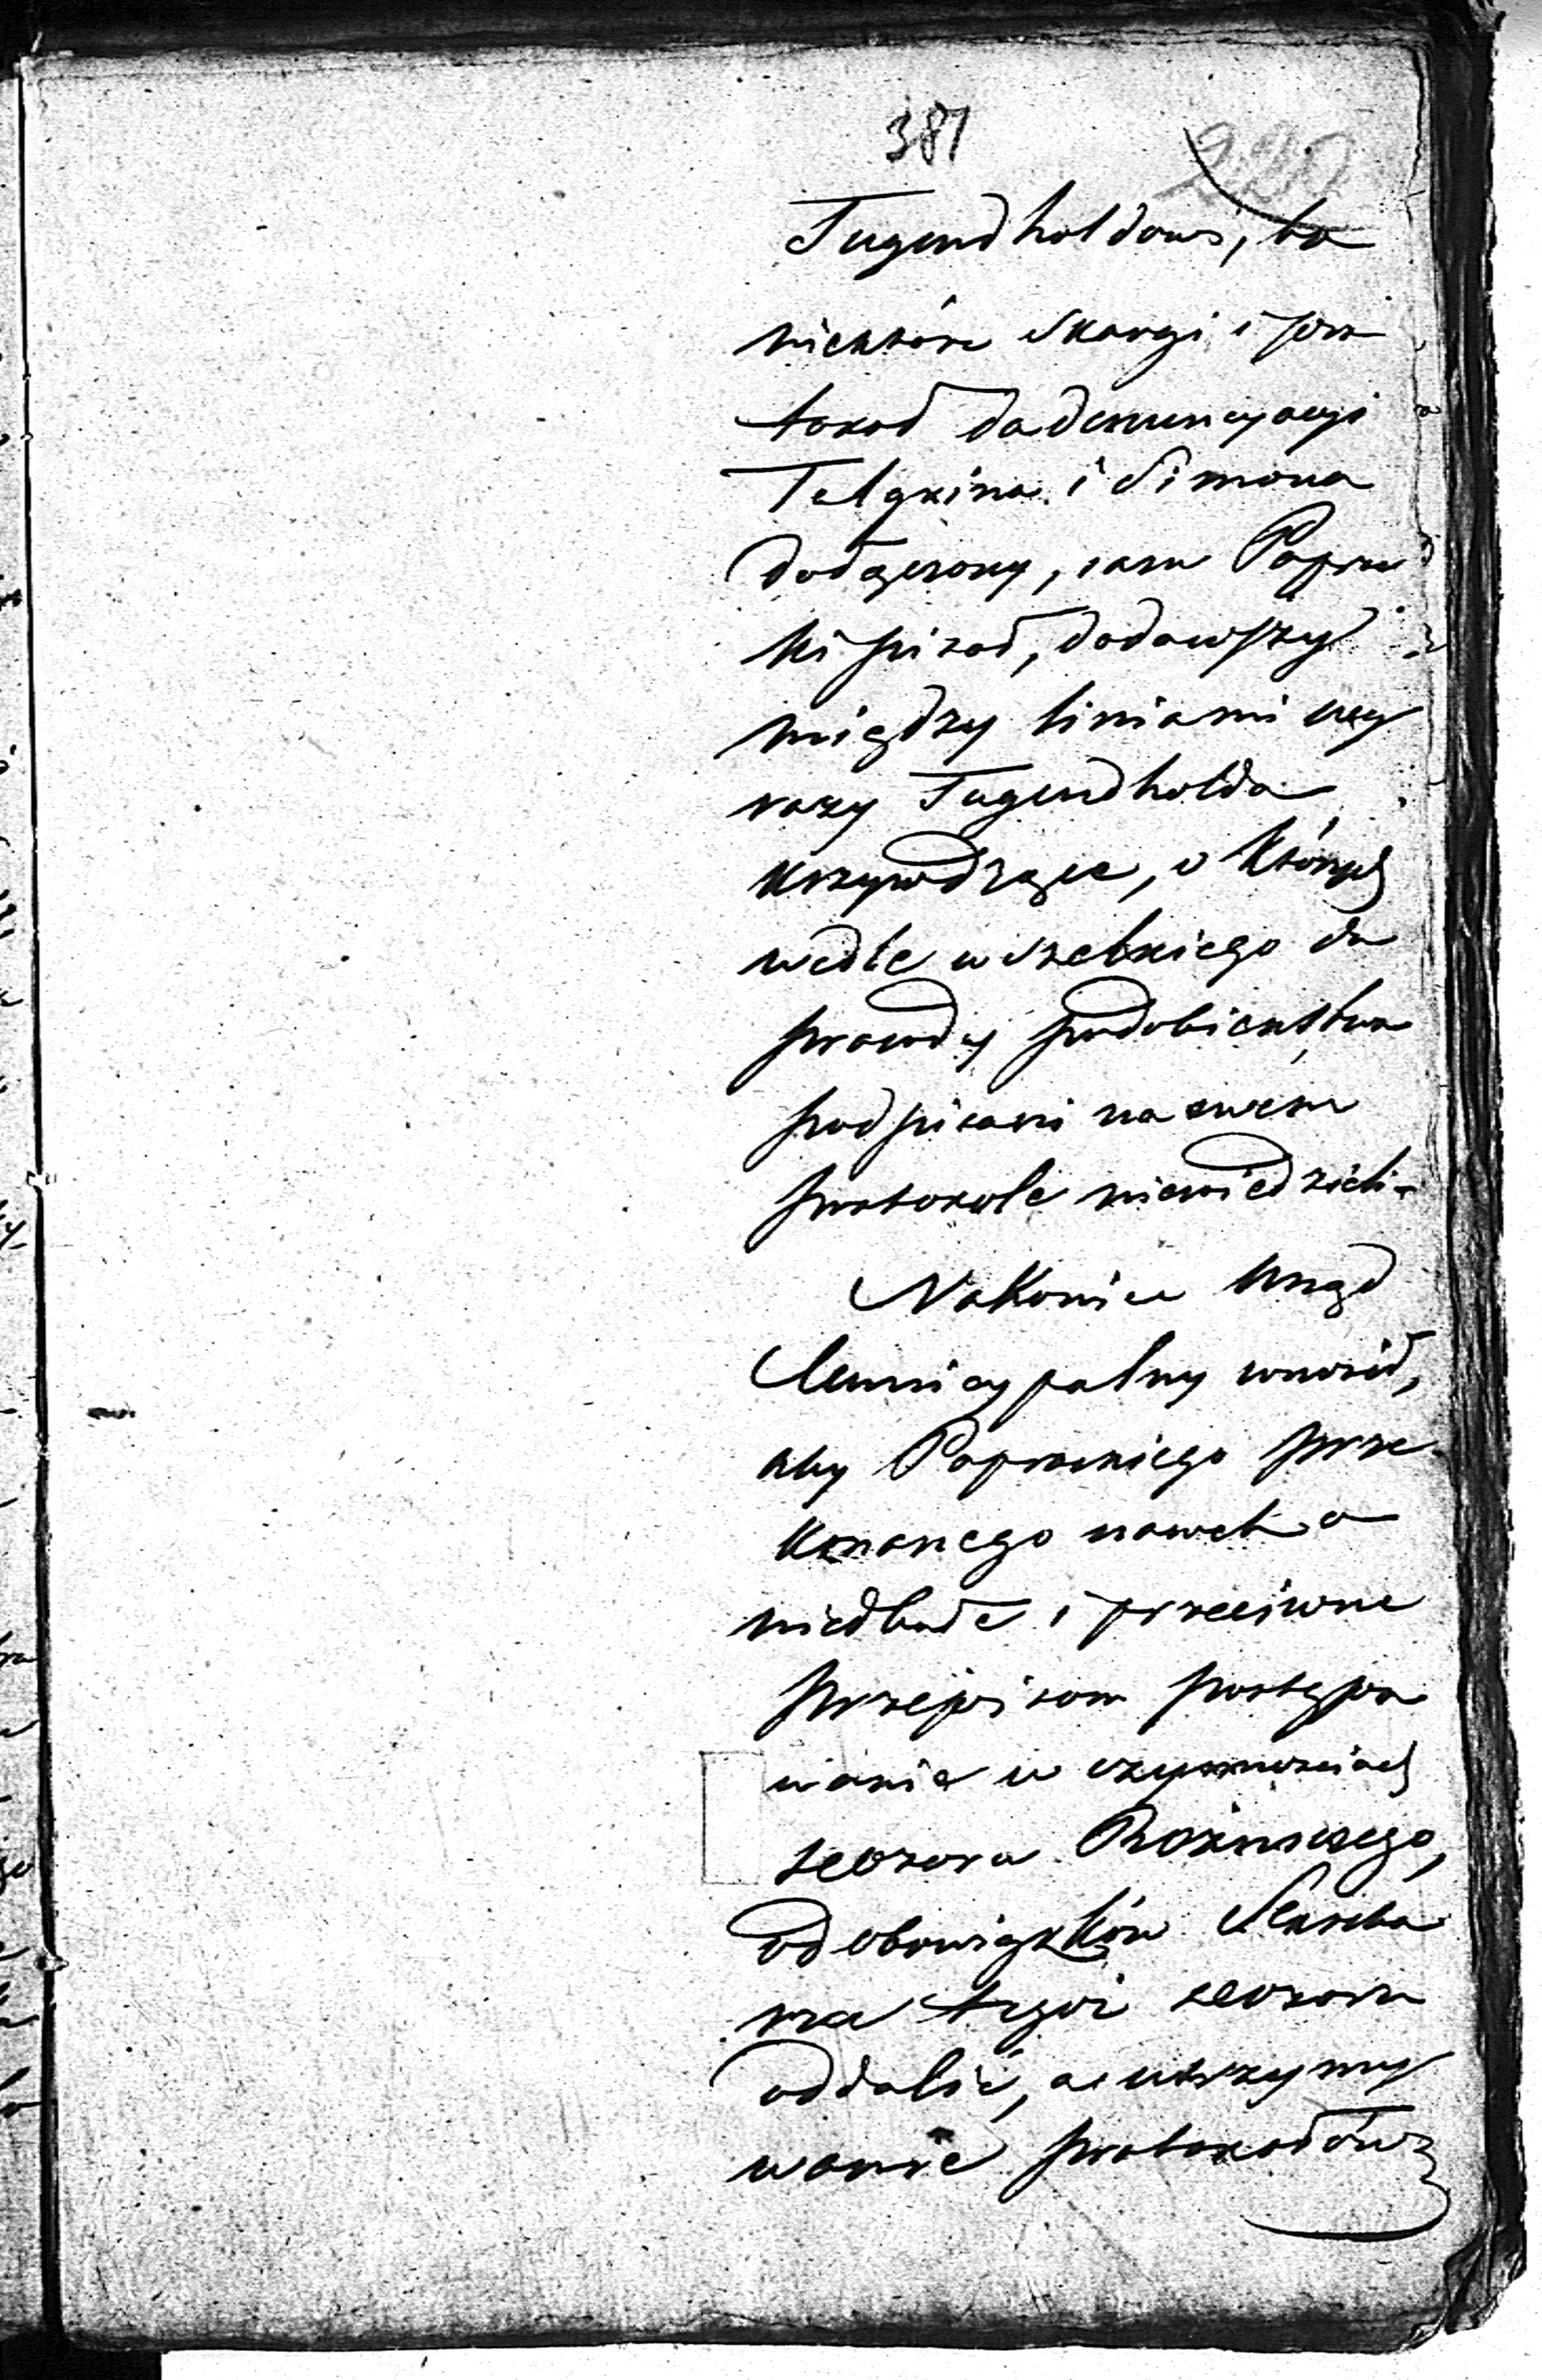 381
220
Tugendholdowi, bo
niektóre skargi i pro
tokoł do denuncyacyi
Telgkina i Simona
dołączony, sam Paprac
ki pisał, dodawszy
między liniami wy
razy Tugendholda
krzywdzące, o których
wedle wszelkiego do
prawdy podobieństwa
podpisani na owem
protokole niewiedzieli.
Nakoniec Urząd
Municypalny wnosił,
aby Paprackiego prze
konanego nawet o
niedbałe i przeciwne
przepisom postępo
wanie w czynnościach
dozoru Bożniczego,
od obowiązków Sekreta
rza tegoż dozoru
oddalić, a utrzymy
wanie protokołów